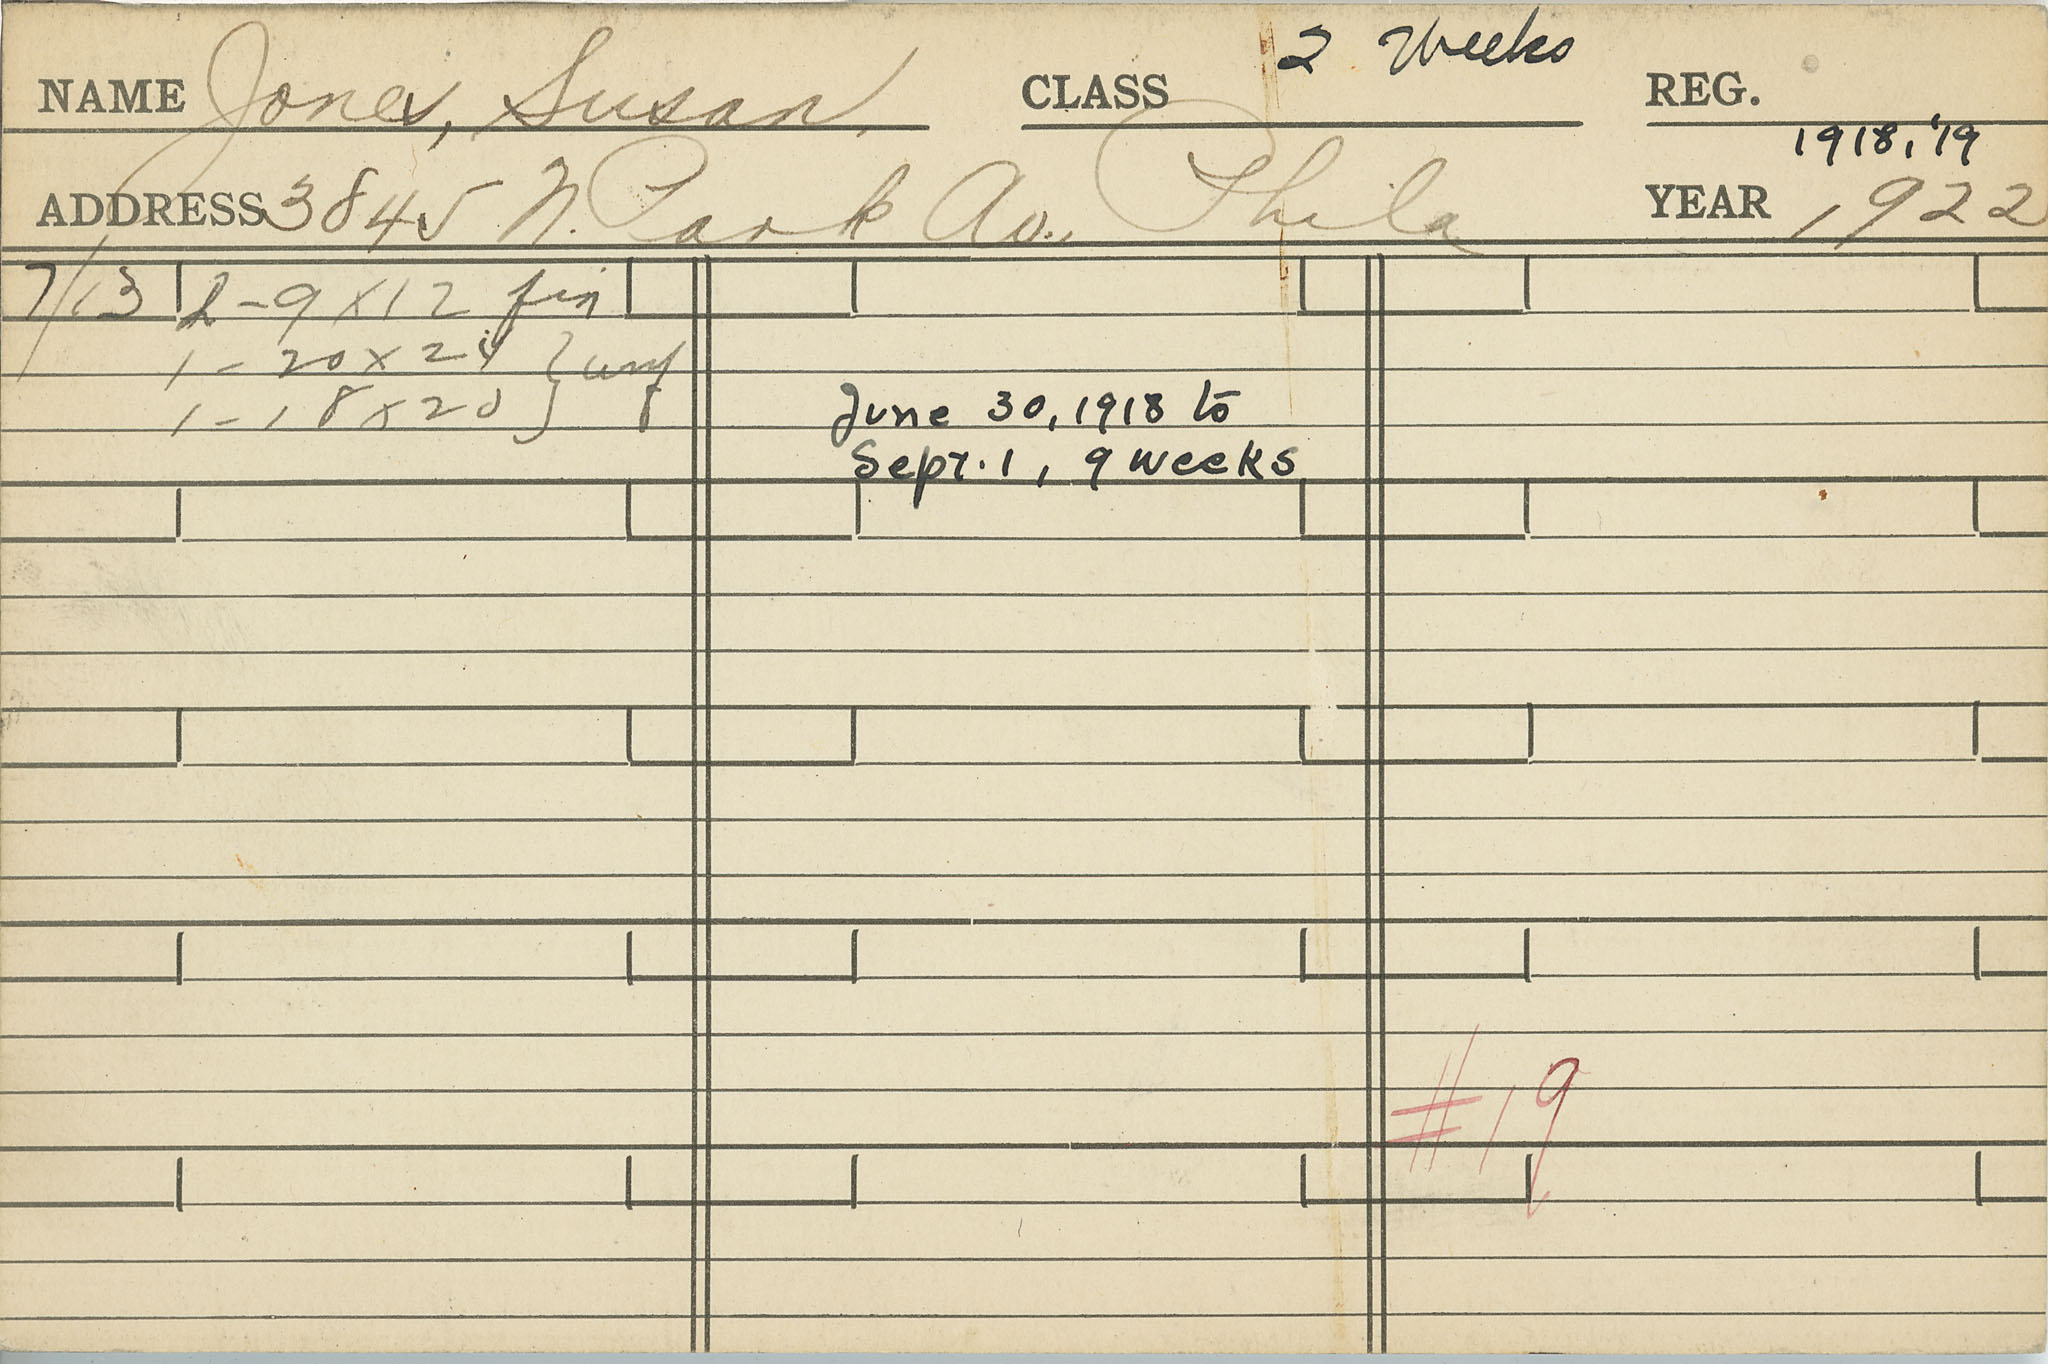 NAME Jones, Susan CLASS 2 Weeks REG.
1918, '19
ADDRESS 3845 N. Park Av., Phila YEAR 1922
7/13 2-9x12 fin
1-20x24 } unf
1-18x20 }
June 30, 1918 to
Sept. 1, 9 weeks
#19